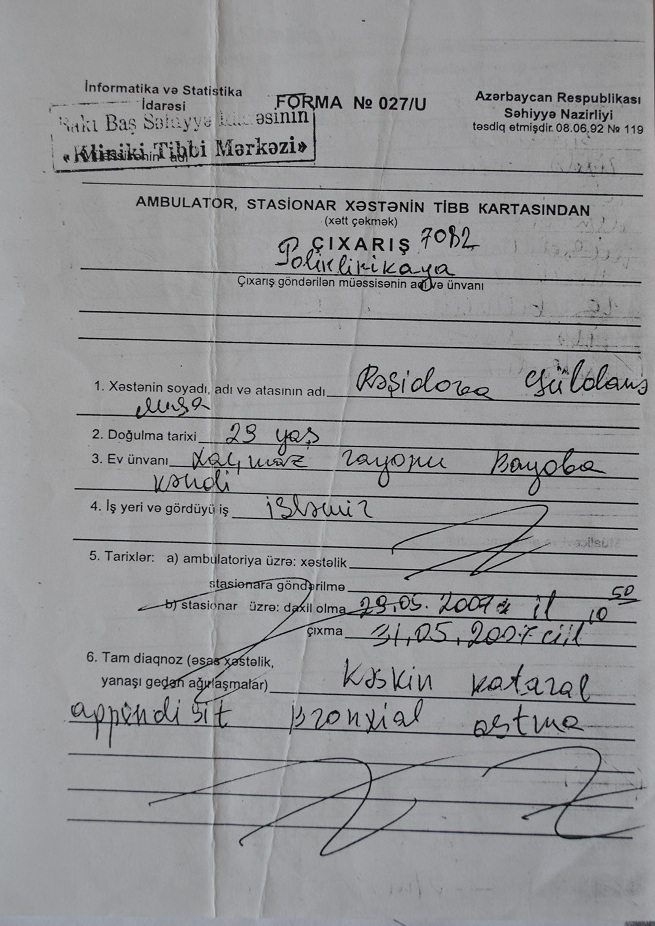 İnformatika və Statistika
İdarəsi
FORMA № 027/U
Azərbaycan Respublikası
Səhiyyə Nazirliyi
təsdiq etmişdir. 08.06.92 № 119
Bakı Baş Səhiyyə İdarəsinin
«Kliniki Tibbi Mərkəzi»
AMBULATOR, STASİONAR XƏSTƏNİN TİBB KARTASINDAN
(xətt çəkmək)
ÇIXARIŞ 7082
Poliklinikaya
Çıxarış göndərilən müəssisənin adı və ünvanı
1. Xəstənin soyadı, adı və atasının adı Rəşidova Güldanə
Musa
2. Doğulma tarixi 29 yaş
3. Ev ünvanı Xaçmaz rayonu Bayoba
kəndi
4. İş yeri və gördüyü iş işləmir
5. Tarixlər: a) ambulatoriya üzrə: xəstəlik
stasionara göndərilmə
b) stasionar üzrə: daxil olma 29.05.2007 ci il 10 50
çıxma 31.05.2007 ci il
6. Tam diaqnoz (əsas xəstəlik,
yanaşı gedən ağırlaşmalar) Kəskin kataral
appendisit Bronxial astma